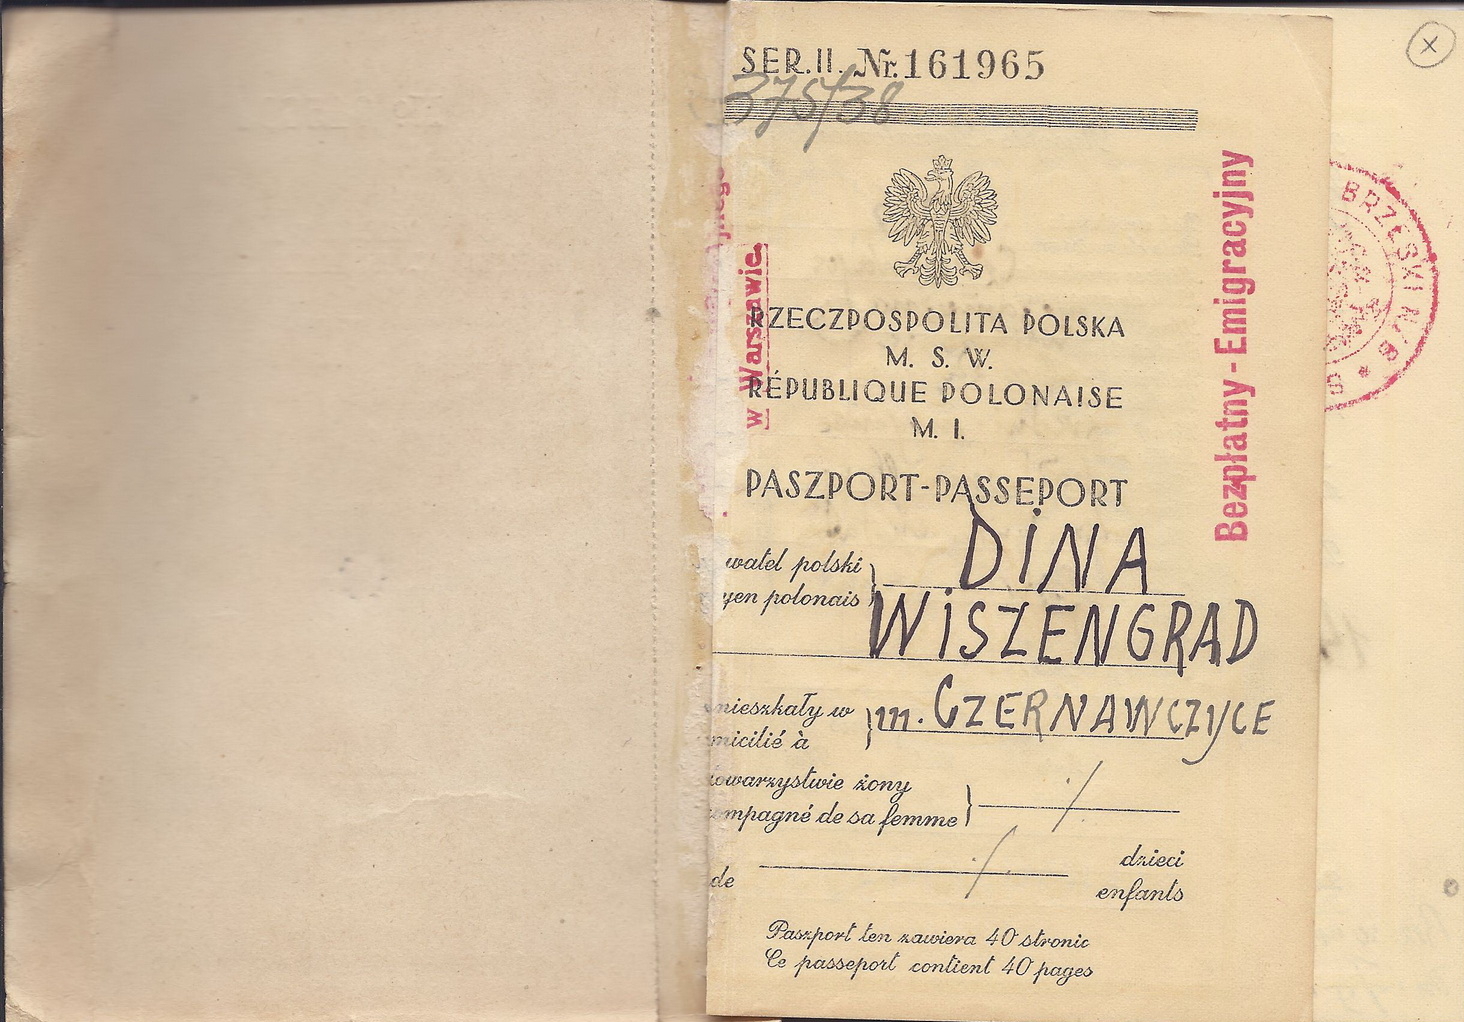 SER. II. Nr. 161965
375/38
RZECZPOSPOLITA POLSKA
M. S. W.
RÉPUBLIQUE POLONAISE
M. I.
PASZPORT-PASSEPORT
watel polski
yen polonais
DiNA
WiSZENGRAD
mieszkały w
micilié à
m. CZERNAWCZYCE
towarzystwie żony
ompagné de sa femme
de
dzieci
enfants
Paszport ten zawiera 40 stronic
Ce passeport contient 40 pages
w Warszawie
Bezpłatny-Emigracyjny
BRZESKI N/B
X